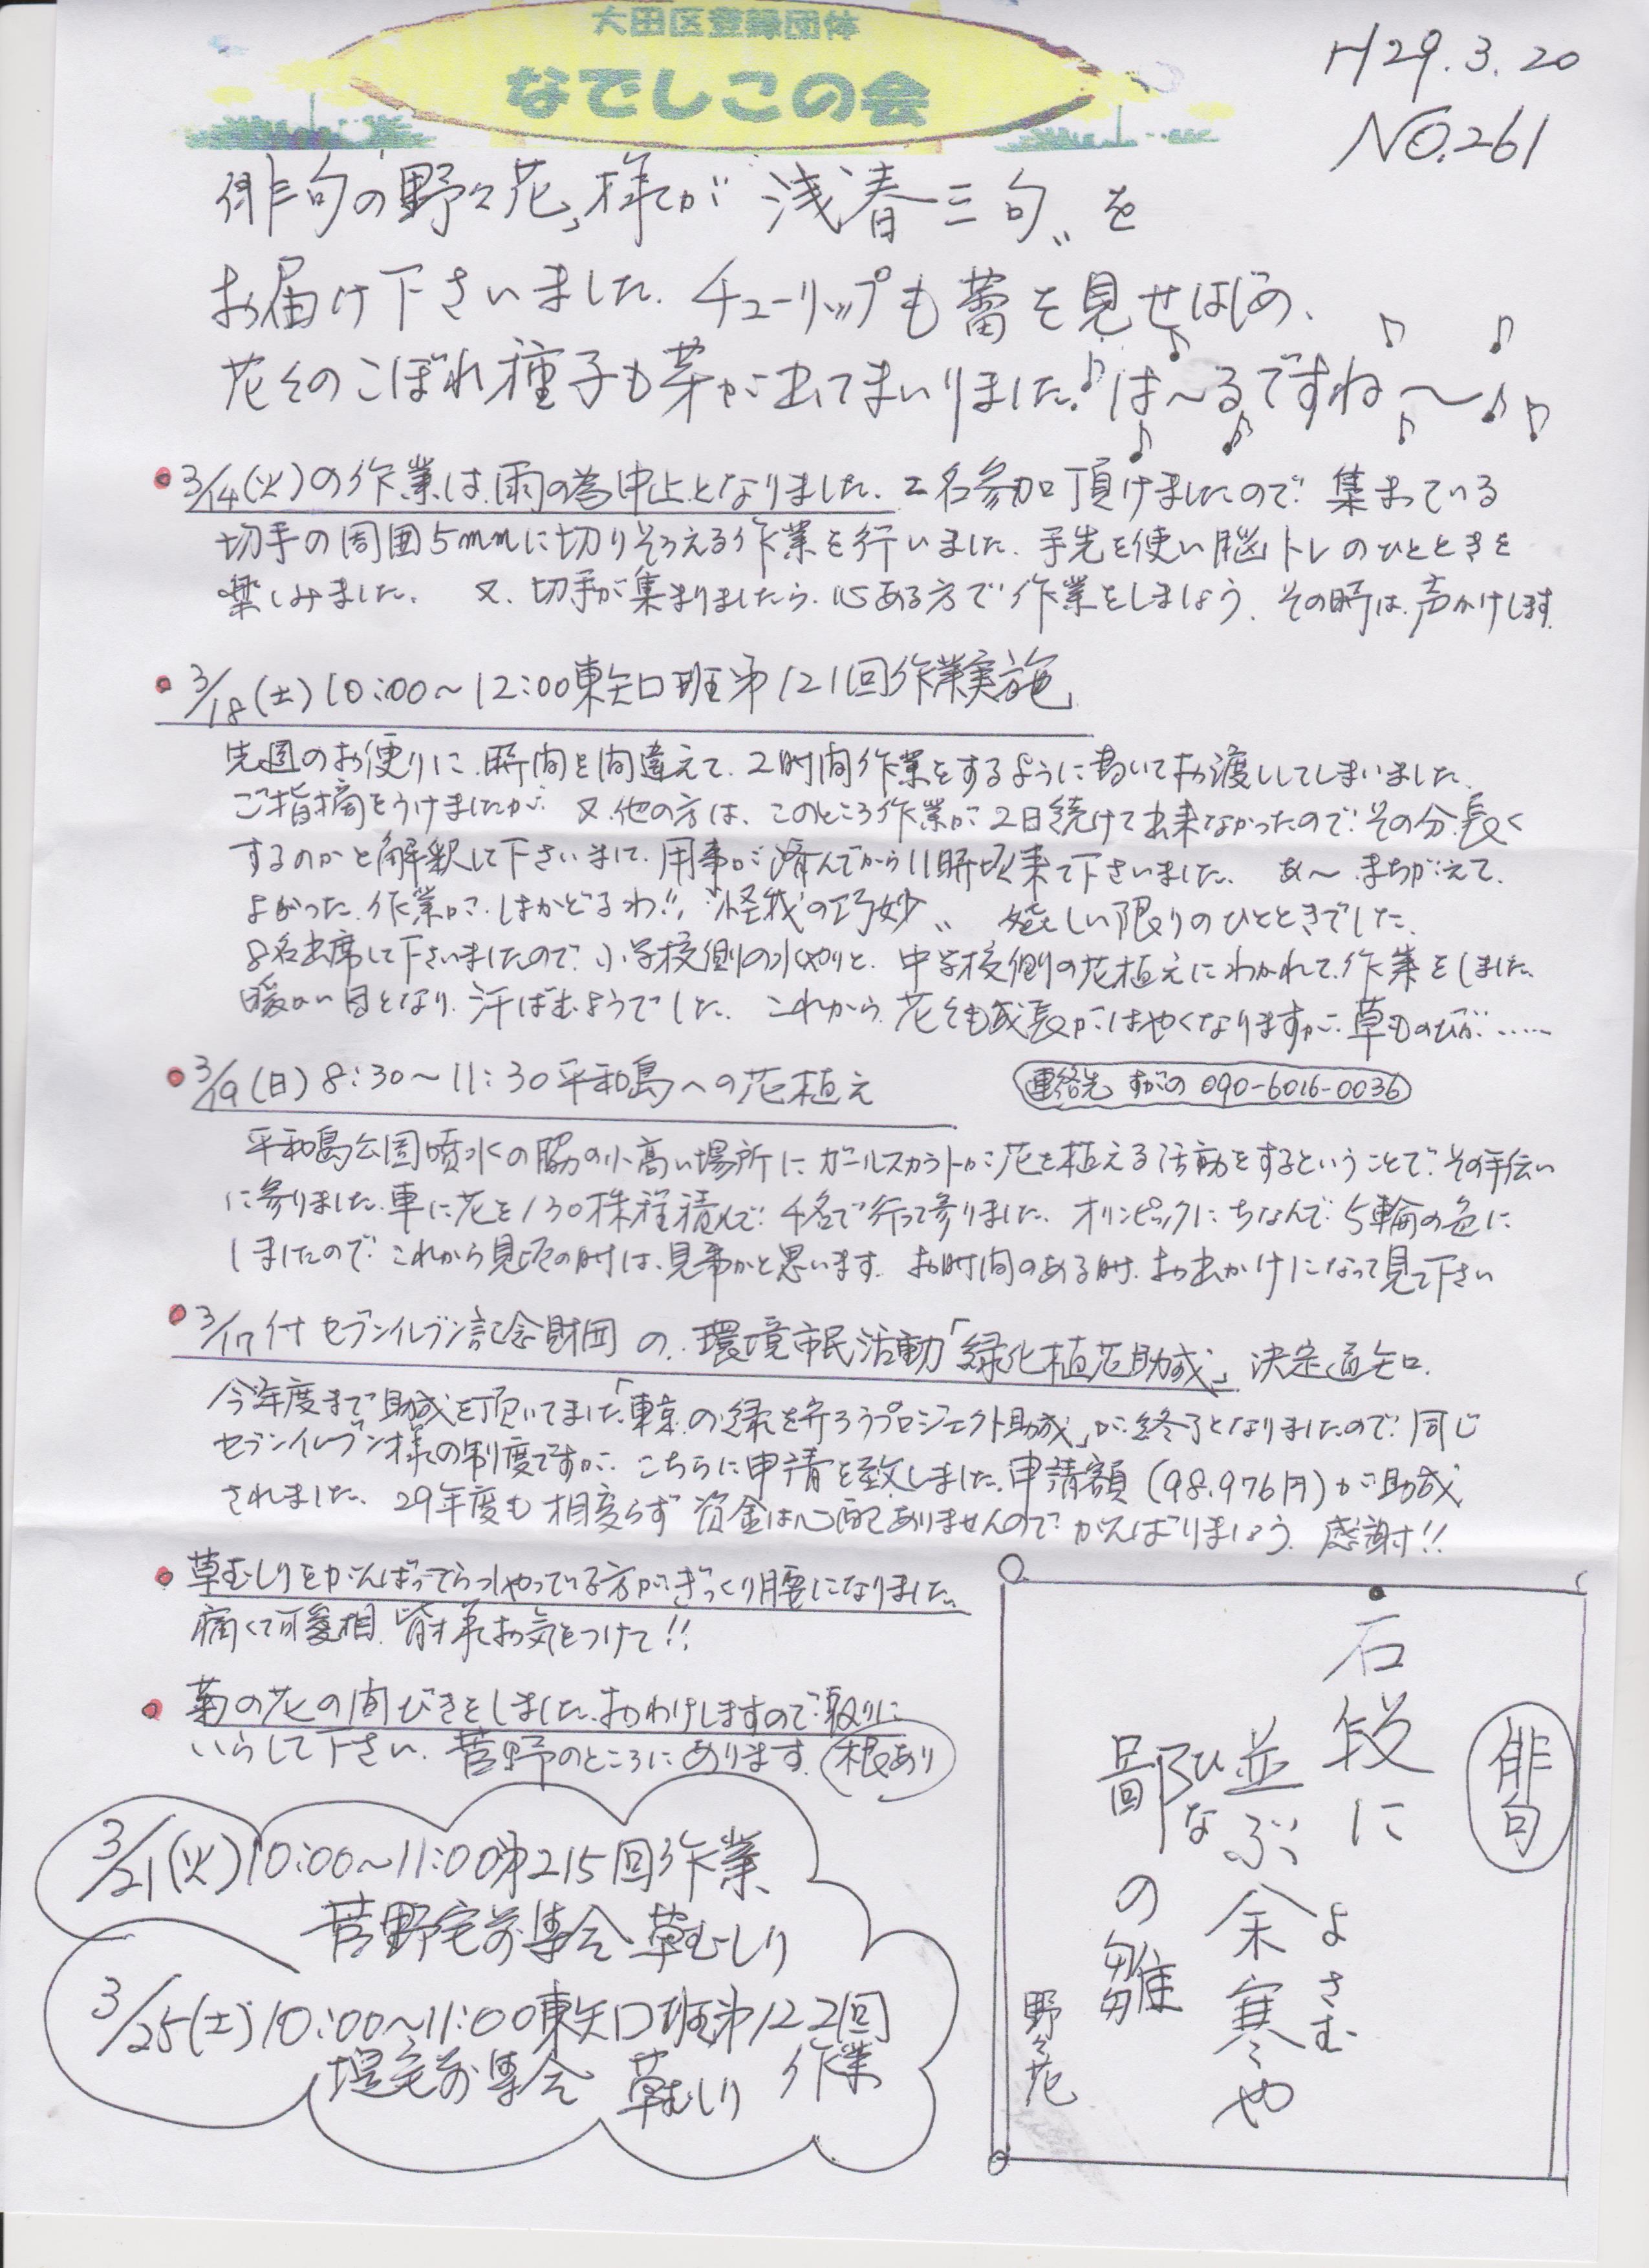 大田区登録団体
なでしこの会
H29.3.20
NO.261
俳句の「野々花」様が〝浅春三句〟を
お届け下さいました。チューリップも蕾を見せはじめ、
花々のこぼれ種子も芽が出てまいりました。♪は〜るですね〜♪
・3/14(火)の作業は、雨の為中止となりました。二名参加頂けましたので、集まっている
切手の周囲5mmに切りそろえる作業を行いました。手先を使い脳トレのひとときを
楽しみました。 又、切手が集まりましたら、心ある方で作業をしましょう。その時は、声かけします。
・3/18(土)10:00〜12:00東矢口班第121回作業実施
先週のお便りに、時間を間違えて、2時間作業をするように書いてお渡ししてしまいました。
ご指摘をうけましたが、又、他の方は、このところ作業が2日続けて出来なかったので、その分、長く
するのかと解釈して下さいまして、用事が済んでから11時頃来て下さいました。 あ〜、まちがえて、
よかった。作業が、はかどるわ!!〝怪我の巧妙〟 嬉しい限りのひとときでした。
8名出席して下さいましたので、小学校側の水やりと、中学校側の花植えにわかれて、作業をしました。
暖かい日となり、汗ばむようでした。 これから、花々も成長がはやくなりますが、草ものびが……
・3/19(日)8:30〜11:30平和島への花植え
連絡先 すがの 090-6016-0036
平和島公園噴水の脇の小高い場所に、ガールスカウトが花を植える活動をするということで、その手伝い
に参りました。車に花を130株程積んで、4名で行って参りました。オリンピックにちなんで、5輪の色に
しましたので、これから見頃の時は、見事かと思います。お時間のある時、お出かけになって見て下さい
・3/17付 セブンイレブン記念財団の、環境市民活動「緑化植花助成」決定通知。
今年度まで助成を頂いてました「東京の緑を守ろうプロジェクト助成」が終了となりましたので、同じ
セブンイレブン様の制度ですが、こちらに申請を致しました。申請額(98,976円)が助成
されました。29年度も相変らず資金は心配ありませんので、がんばりましょう。感謝!!
・草むしりをがんばってらっしゃっている方がぎっくり腰になりました。
痛くて可愛相。皆様お気をつけて!!
・菊の花の間びきをしました。おわけしますので、取りに
いらして下さい。菅野のところにあります。根あり
3/21(火)10:00〜11:00第215回作業
菅野宅前集合 草むしり
3/25(土)10:00〜11:00東矢口班第122回
作業
堤宅前集合 草むしり
俳句
・石段に
並ぶ余寒や
よさむ
鄙の雛
ひな
野々花